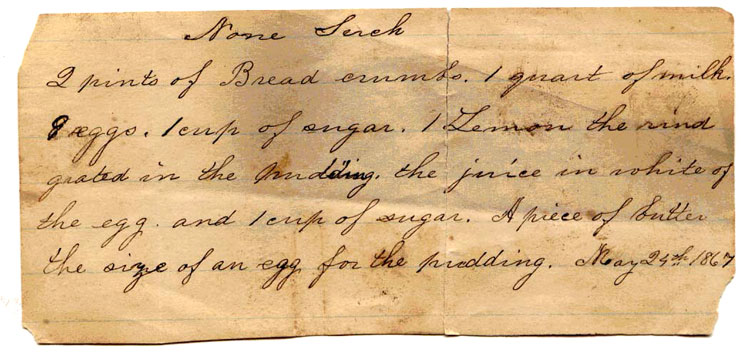 None Such
2 pints of Bread crumbs. 1 quart of milk.
8 eggs. 1 cup of sugar. 1 Lemon the rind
grated in the pudding. the juice in white of
the egg. and 1 cup of sugar. A piece of butter
the size of an egg for the pudding. May 24th 1867